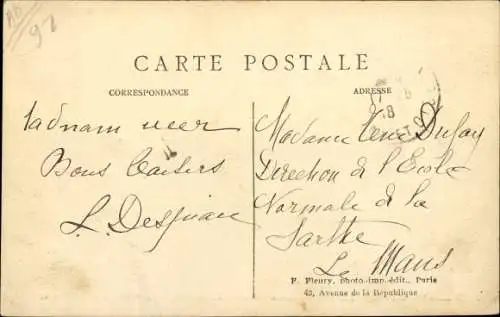 91
CARTE POSTALE
CORRESPONDANCE
ADRESSE
Bons baisers
Madame Veuve Dufay
Direction de l'Ecole
Normale de la
Sarthe
Le Mans
F. Fleury, photo-imp.-édit., Paris
43, Avenue de la République